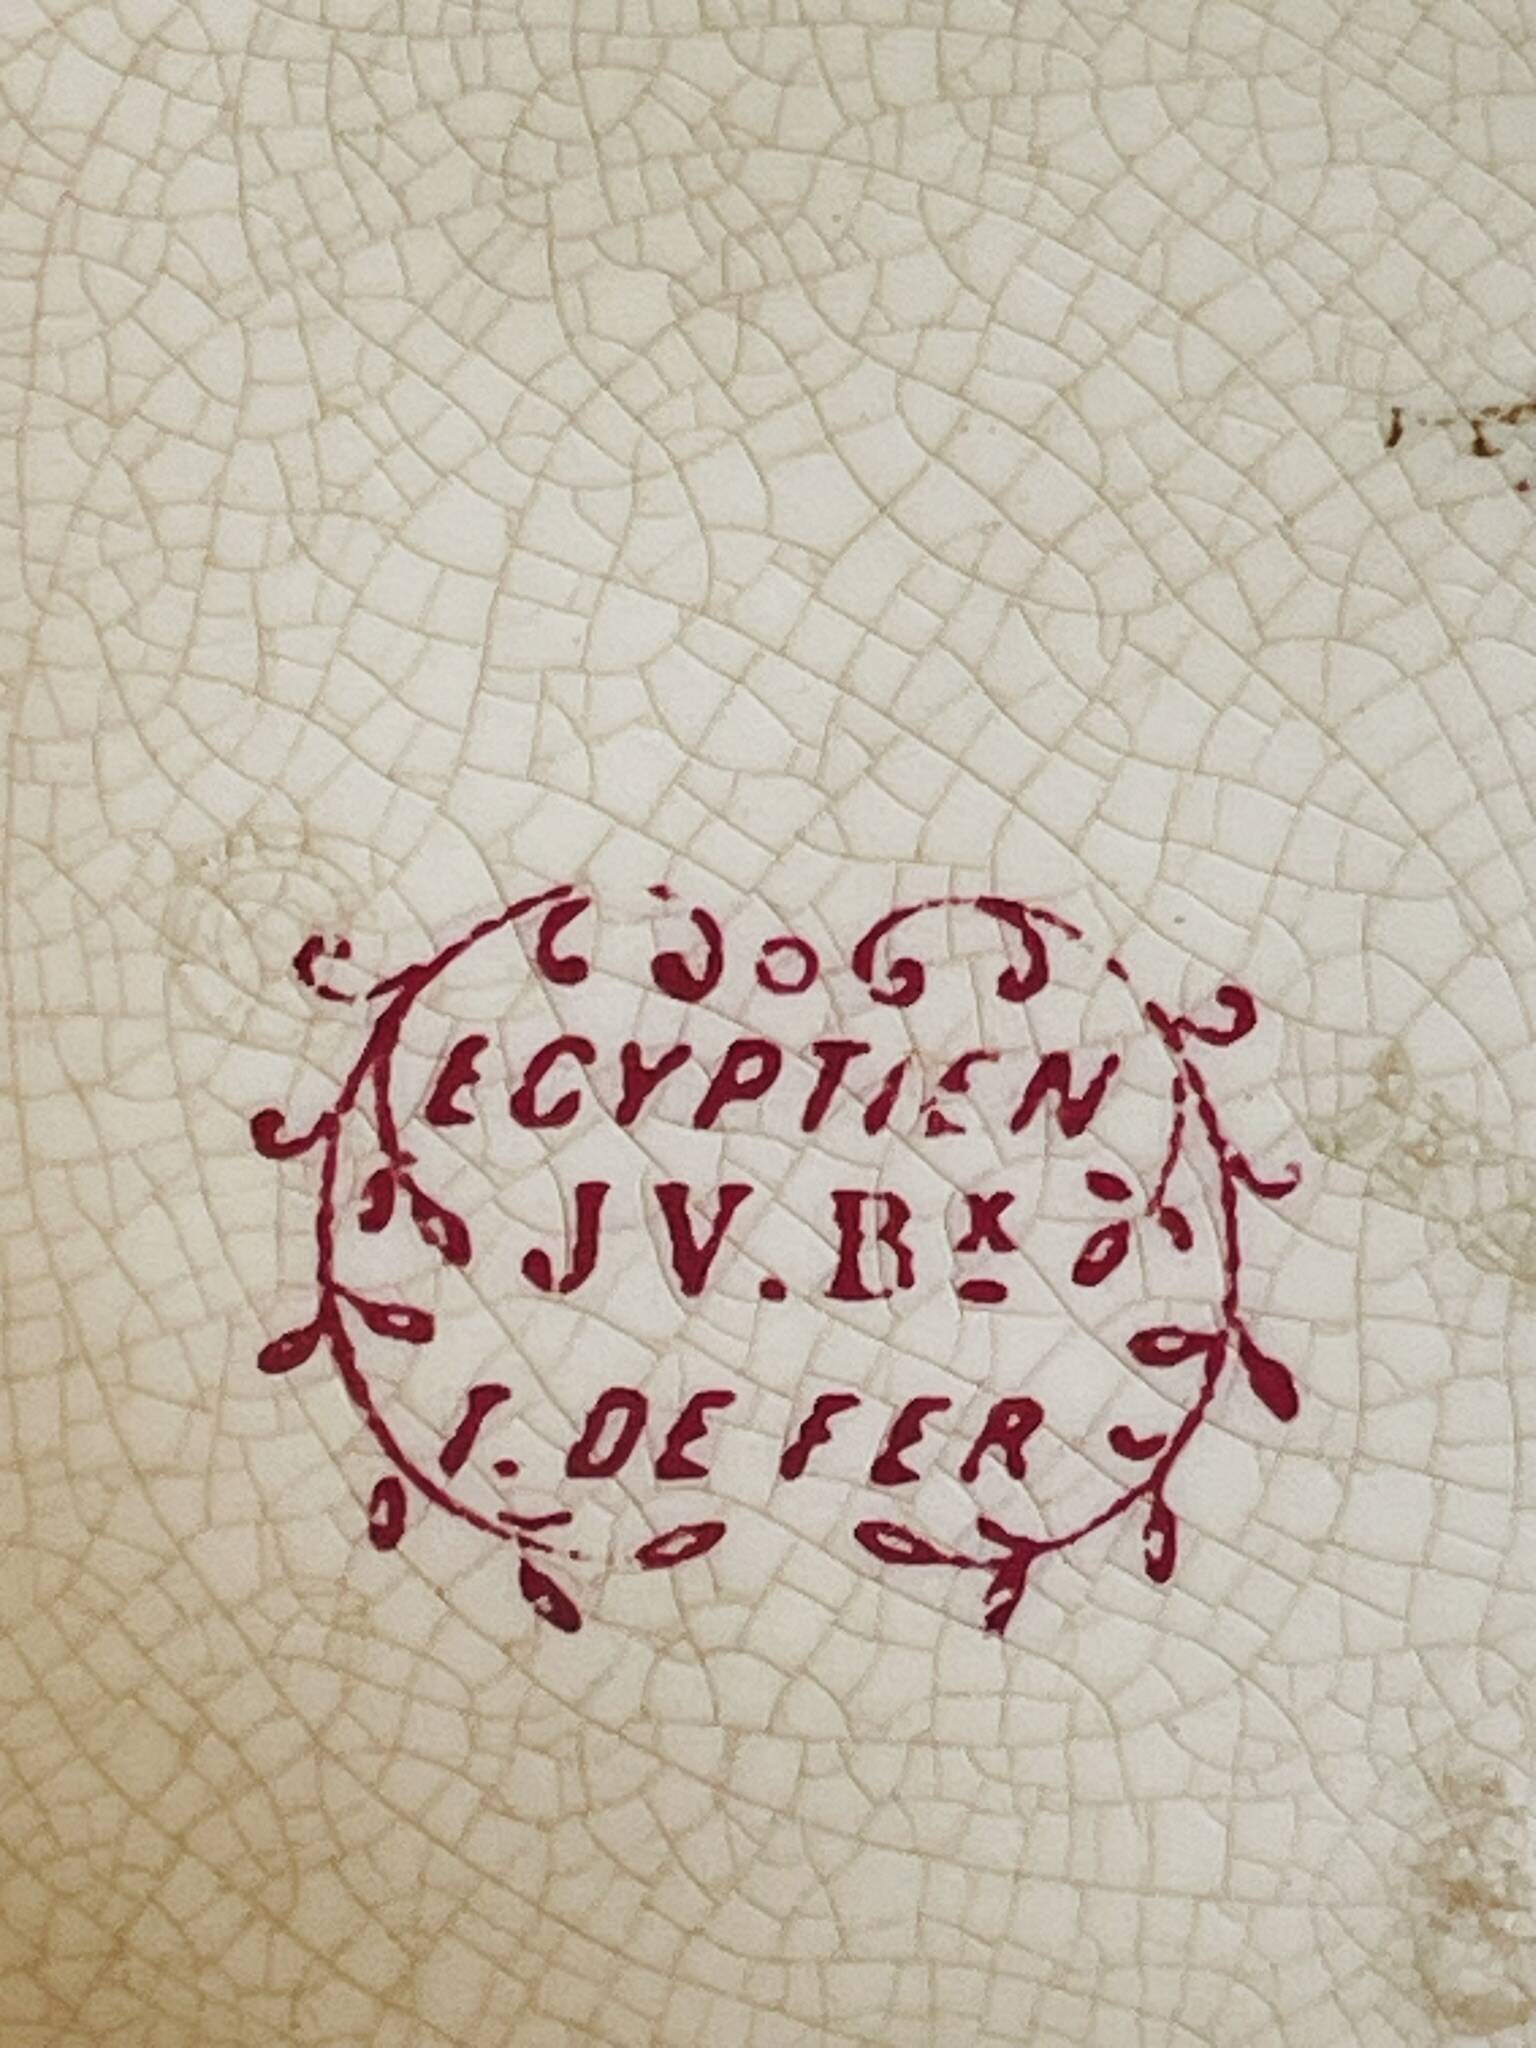 EGYPTIEN
J V. Bx
T. DE FER